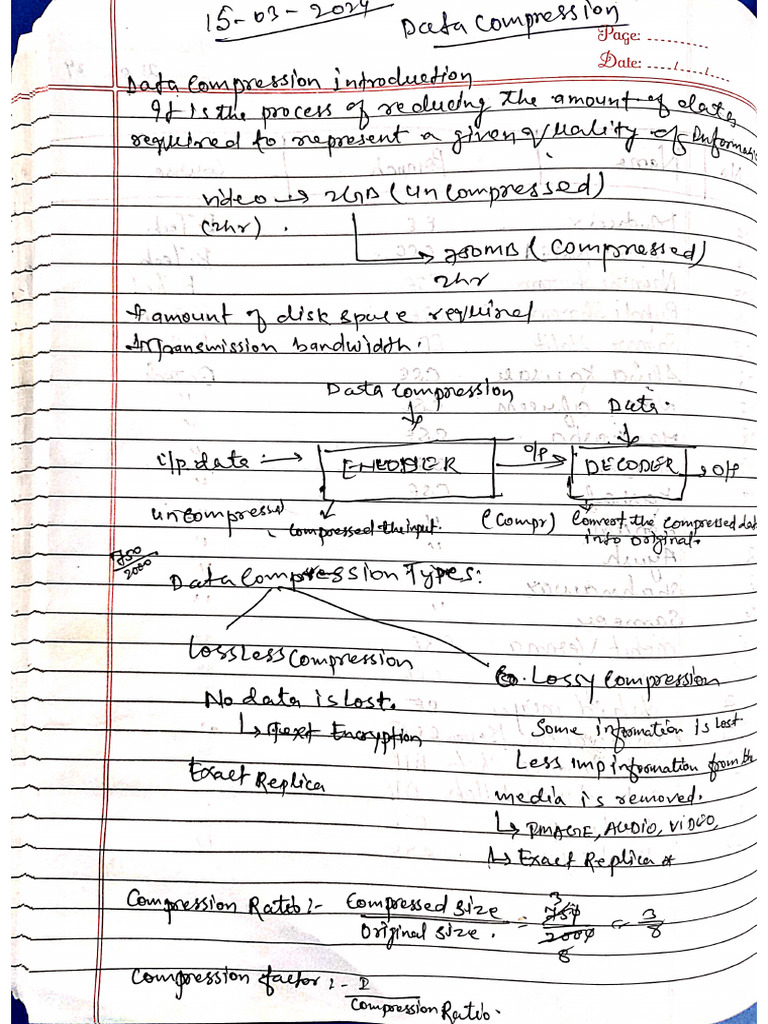 15-03-2024
Data Compression
Page: ..........
Date: ...../...../.....
Data Compression introduction
It is the process of reducing the amount of data
required to represent a given quality of Informatio
video → 2GB (uncompressed)
(2hr).
→ 750MB (Compressed)
2hr
amount of disk space required
Transmission bandwidth.
Data Compression
Data.
i/p data → ENCODER O/P → DECODER → O/P
uncompressed
Compressed the input.
(Compr) Convert the compressed dat
into original.
750/2000
Data Compression Types:
LossLess Compression
Lossy Compression
No data is lost.
Some infromation is Lost
↳ Text Encryption
Less imp infromation from th
Exact Replica
media is removed.
↳ IMAGE, AUDIO, VIDEO,
↳ Exact Replica
Compression Ratio :- Compressed size / Original size. = 750/2000 = 3/8
3
8
Compression factor :- 1 / Compression Ratio.